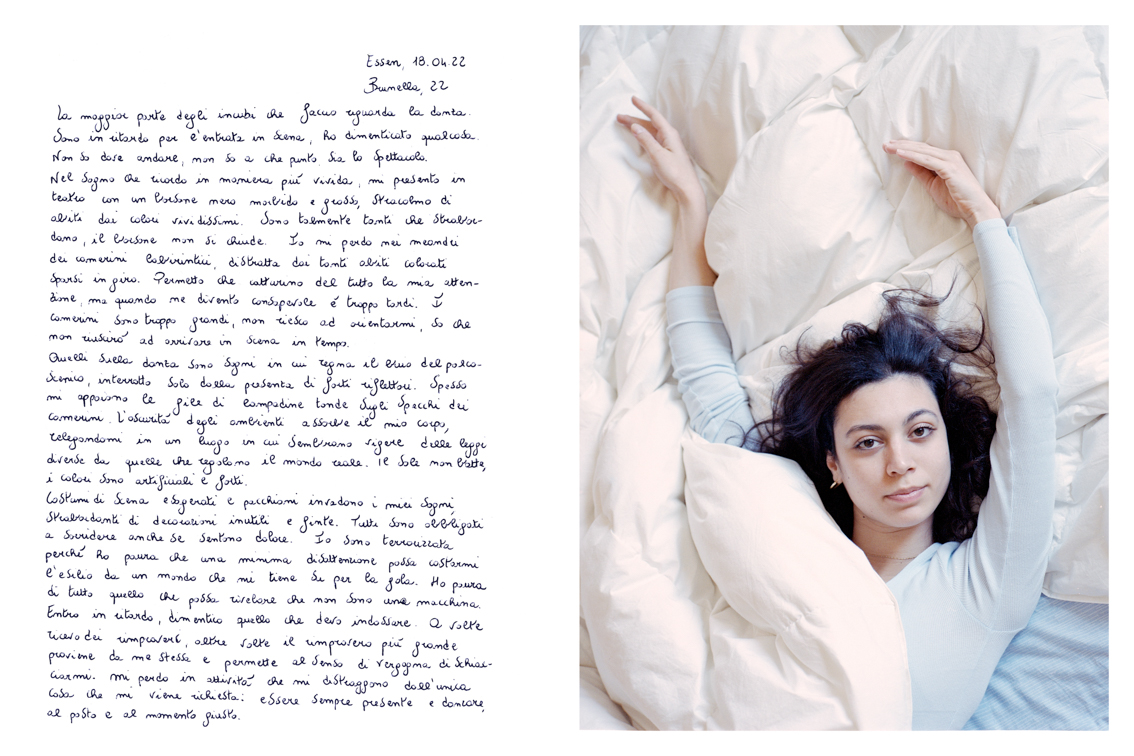 Essen, 18.04.22
Brunella, 22
La maggior parte degli incubi che faccio riguarda la danza.
Sono in ritardo per l'entrata in scena, ho dimenticato qualcosa.
Non so dove andare, non so a che punto sia lo spettacolo.
Nel sogno che ricordo in maniera più vivida, mi presento in
teatro con un borsone nero morbido e grosso, stracolmo di
abiti dai colori vividissimi. Sono talmente tanti che strabor-
dano, il borsone non si chiude. Io mi perdo nei meandri
dei camerini labirintici, distratta dai tanti abiti colorati
sparsi in giro. Permetto che catturino del tutto la mia atten-
zione, ma quando me divento consapevole é troppo tardi. I
camerini sono troppo grandi, non riesco ad orientarmi, so che
non riusciró ad arrivare in scena in tempo.
Quelli sulla danza sono sogni in cui regna il buio del palco-
scenico, interrotto solo dalla presenza di forti riflettori. Spesso
mi appaiono le file di lampadine tonde sugli specchi dei
camerini. L'oscurità degli ambienti assorbe il mio corpo,
relegandomi in un luogo in cui sembrano vigere delle leggi
diverse da quelle che regolano il mondo reale. Il sole non batte,
i colori sono artificiali e forti.
Costumi di scena esagerati e pacchiani invadono i miei sogni,
strabordanti di decorazioni inutili e finte. Tutti sono obbligati
a sorridere anche se sentono dolore. Io sono terrorizzata
perché ho paura che una minima disattenzione possa costarmi
l'esilio da un mondo che mi tiene su per la gola. Ho paura
di tutto quello che possa rivelare che non sono una macchina.
Entro in ritardo, dimentico quello che devo indossare. A volte
ricevo dei rimproveri, altre volte il rimprovero più grande
proviene da me stessa e permette al senso di vergogna di schiac-
ciarmi. Mi perdo in attività che mi distraggono dall'unica
cosa che mi viene richiesta: essere sempre presente e danzare,
al posto e al momento giusto.